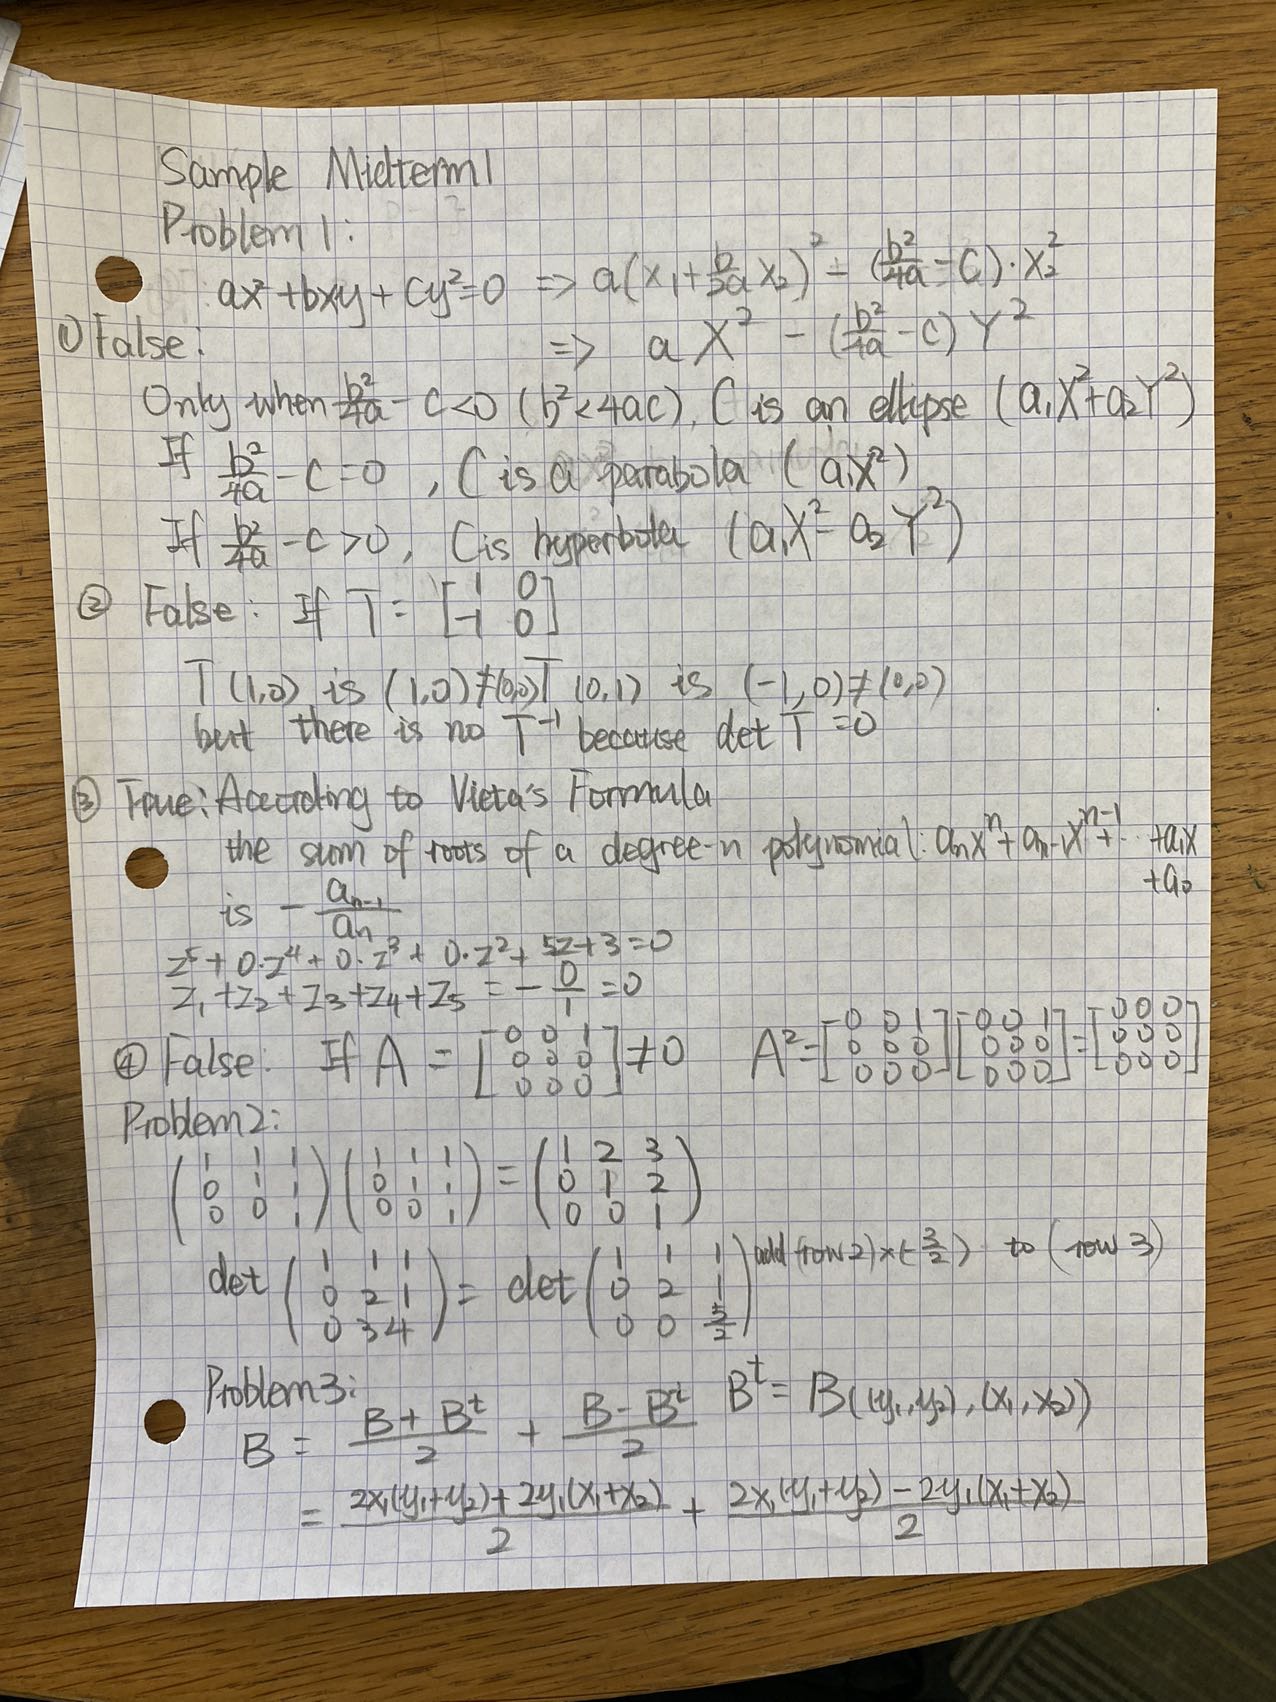 Sample Midterm1
Problem 1:
ax²+bxy+cy²=0 => a(x₁+b/2a x₂)² - (b²/4a - C)·x₂²
① False: => a X² - (b²/4a - C) Y²
Only when b²/4a - C<0 (b²<4ac), C is an ellipse (a₁X²+a₂Y²)
If b²/4a - C=0, C is a parabola (a₁X²)
If b²/4a - C>0, C is hyperbola (a₁X²-a₂Y²)
② False: If T = [1 0
-1 0]
T(1,0) is (1,0)≠(0,0) T(0,1) is (-1,0)≠(0,0)
but there is no T⁻¹ because det T =0
③ True: According to Vieta's Formula
the sum of roots of a degree-n polynomial: aₙxⁿ+aₙ₋₁xⁿ⁻¹+ ·· +a₁x
+a₀
is - aₙ₋₁/aₙ
z⁵+0·z⁴+0·z³+0·z²+5z+3=0
z₁+z₂+z₃+z₄+z₅ = - 0/1 =0
④ False: If A = [0 0 1
0 0 0
0 0 0] ≠0 A²=[0 0 1
0 0 0
0 0 0] [0 0 1
0 0 0
0 0 0]=[0 0 0
0 0 0
0 0 0]
Problem2:
(1 1 1
0 1 1
0 0 1) (1 1 1
0 1 1
0 0 1) = (1 2 3
0 1 2
0 0 1)
det (1 1 1
0 2 1
0 3 4) = det (1 1 1
0 2 1
0 0 5/2) add (row 2)×(-3/2) to (row 3)
Problem3:
B = (B+Bᵗ)/2 + (B-Bᵗ)/2 Bᵗ= B((y₁,y₂),(x₁,x₂))
= (2x₁(y₁+y₂)+2y₁(x₁+x₂))/2 + (2x₁(y₁+y₂)-2y₁(x₁+x₂))/2